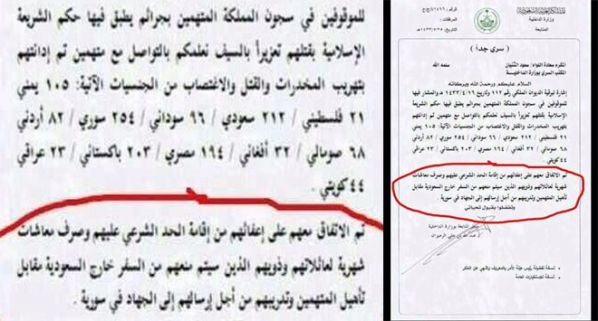 للموقوفين في سجون المملكة المتهمين بجرائم يطبق فيها حكم الشريعة
الإسلامية بقتلهم تعزيراً بالسيف نعلمكم بالتواصل مع متهمين تم إدانتهم
بتهريب المخدرات والقتل والاغتصاب من الجنسيات الآتية: ١٠٥ يمني
٢١ فلسطيني / ٢١٢ سعودي / ٩٦ سوداني / ٢٥٤ سوري / ٨٢ أردني
٦٨ صومالي / ٣٢ أفغاني / ١٩٤ مصري / ٢٠٣ باكستاني / ٢٣ عراقي
٤٤ كويتي .
تم الاتفاق معهم على إعفائهم من إقامة الحد الشرعي عليهم وصرف معاشات
شهرية لعائلاتهم وذويهم الذين سيتم منعهم من السفر خارج السعودية مقابل
تأهيل المتهمين وتدريبهم من أجل إرسالهم إلى الجهاد في سورية .
وزارة الداخلية
( سري جداً )
سلمه الله
السلام عليكم ورحمة الله وبركاته
للموقوفين في سجون المملكة المتهمين بجرائم يطبق فيها حكم الشريعة
الإسلامية بقتلهم تعزيراً بالسيف نعلمكم بالتواصل مع متهمين تم إدانتهم
بتهريب المخدرات والقتل والاغتصاب من الجنسيات الآتية: ١٠٥ يمني
٢١ فلسطيني / ٢١٢ سعودي / ٩٦ سوداني / ٢٥٤ سوري / ٨٢ أردني
٦٨ صومالي / ٣٢ أفغاني / ١٩٤ مصري / ٢٠٣ باكستاني / ٢٣ عراقي
٤٤ كويتي .
تم الاتفاق معهم على إعفائهم من إقامة الحد الشرعي عليهم وصرف معاشات
شهرية لعائلاتهم وذويهم الذين سيتم منعهم من السفر خارج السعودية مقابل
تأهيل المتهمين وتدريبهم من أجل إرسالهم إلى الجهاد في سورية .